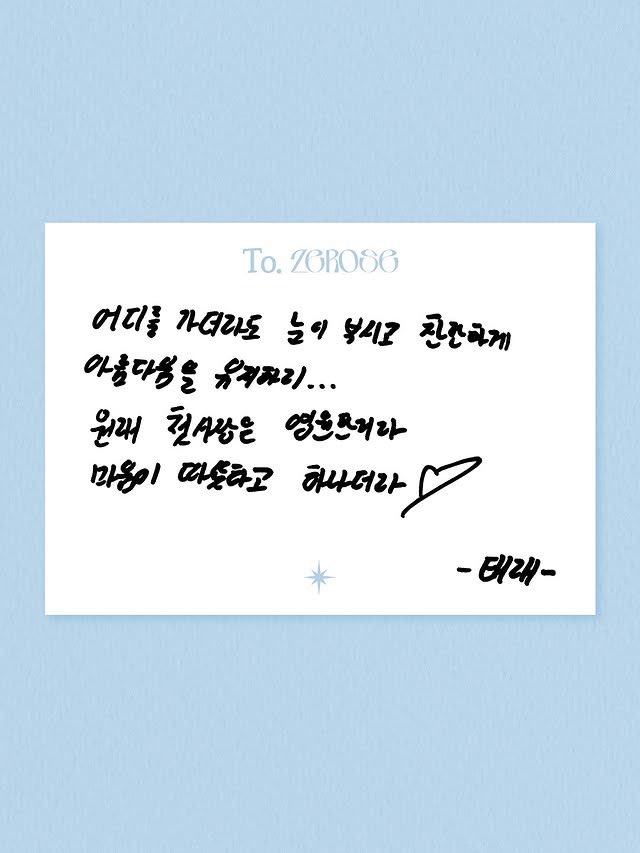 To. ZEROSE
어디를 가더라도 눈이 부시고 찬란하게
아름다움을 유지하리...
원래 첫사랑은 영원프리라
마음이 따뜻타고 하나더라
-태래-